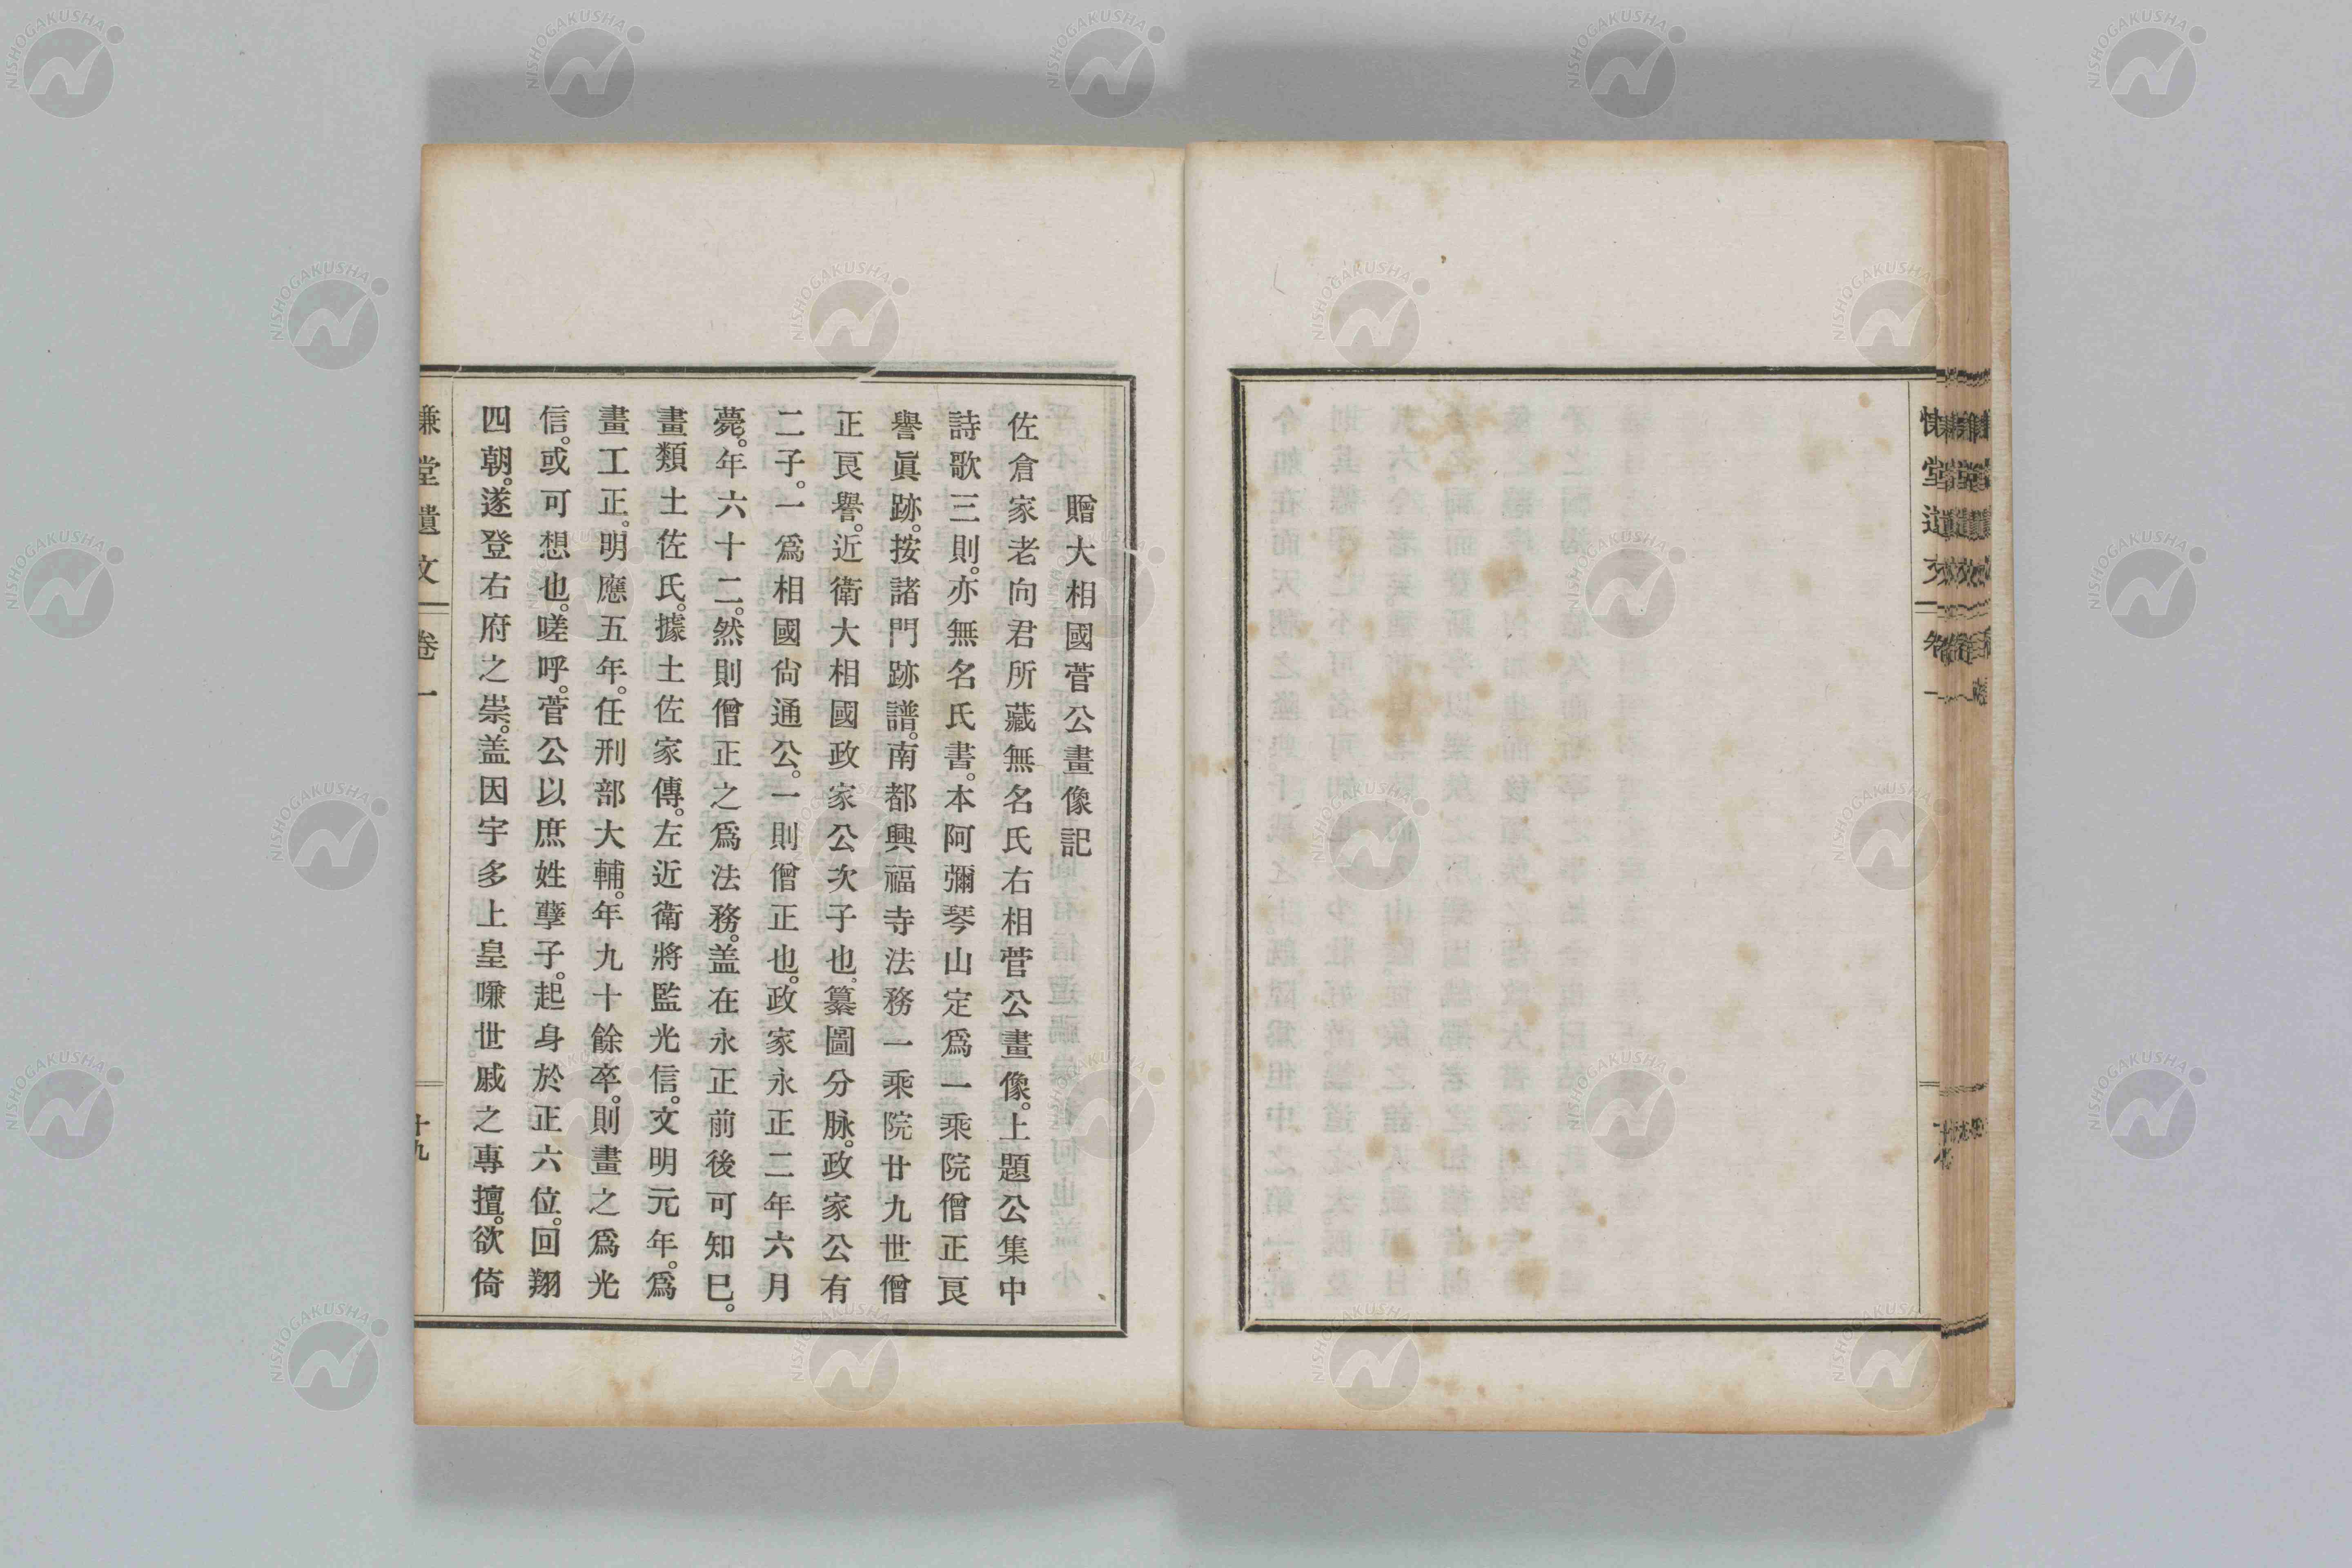 贈大相國菅公畫像記
佐倉家老向君所藏無名氏右相菅公畫像。上題公集中
詩歌三則。亦無名氏書。本阿彌琴山定爲一乘院僧正良
譽眞跡。按諸門跡譜。南都興福寺法務一乘院廿九世僧
正良譽。近衛大相國政家公次子也。纂圖分脉。政家公有
二子。一爲相國尙通公。一則僧正也。政家永正二年六月
薨。年六十二。然則僧正之爲法務。盖在永正前後可知巳。
畫類土佐氏。據土佐家傳。左近衛將監光信。文明元年。爲
畫工正。明應五年。任刑部大輔。年九十餘卒。則畫之爲光
信。或可想也。嗟呼。菅公以庶姓孽子。起身於正六位。回翔
四朝。遂登右府之崇。盖因宇多上皇嗛世戚之專擅。欲倚
慊堂遺文
卷一
十九
NISHOGAKUSHA